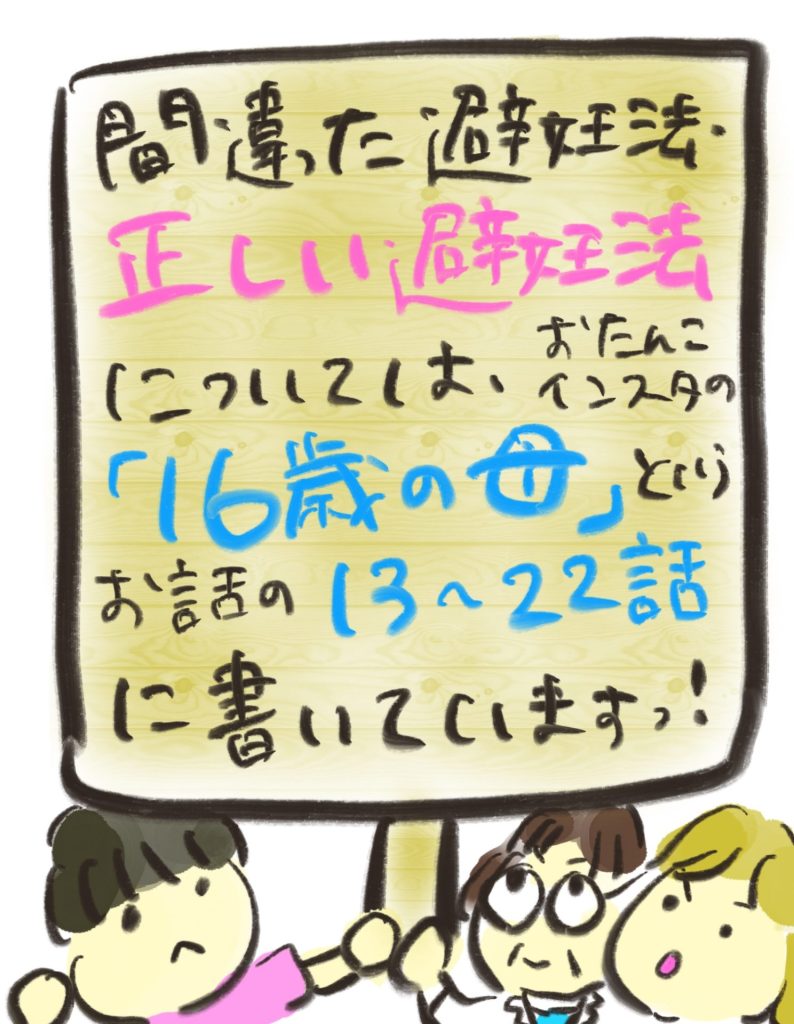 間違った避妊法・
正しい避妊法
については、おたんこ
インスタの
「16歳の母」という
お話の13〜22話
に書いていますっ!